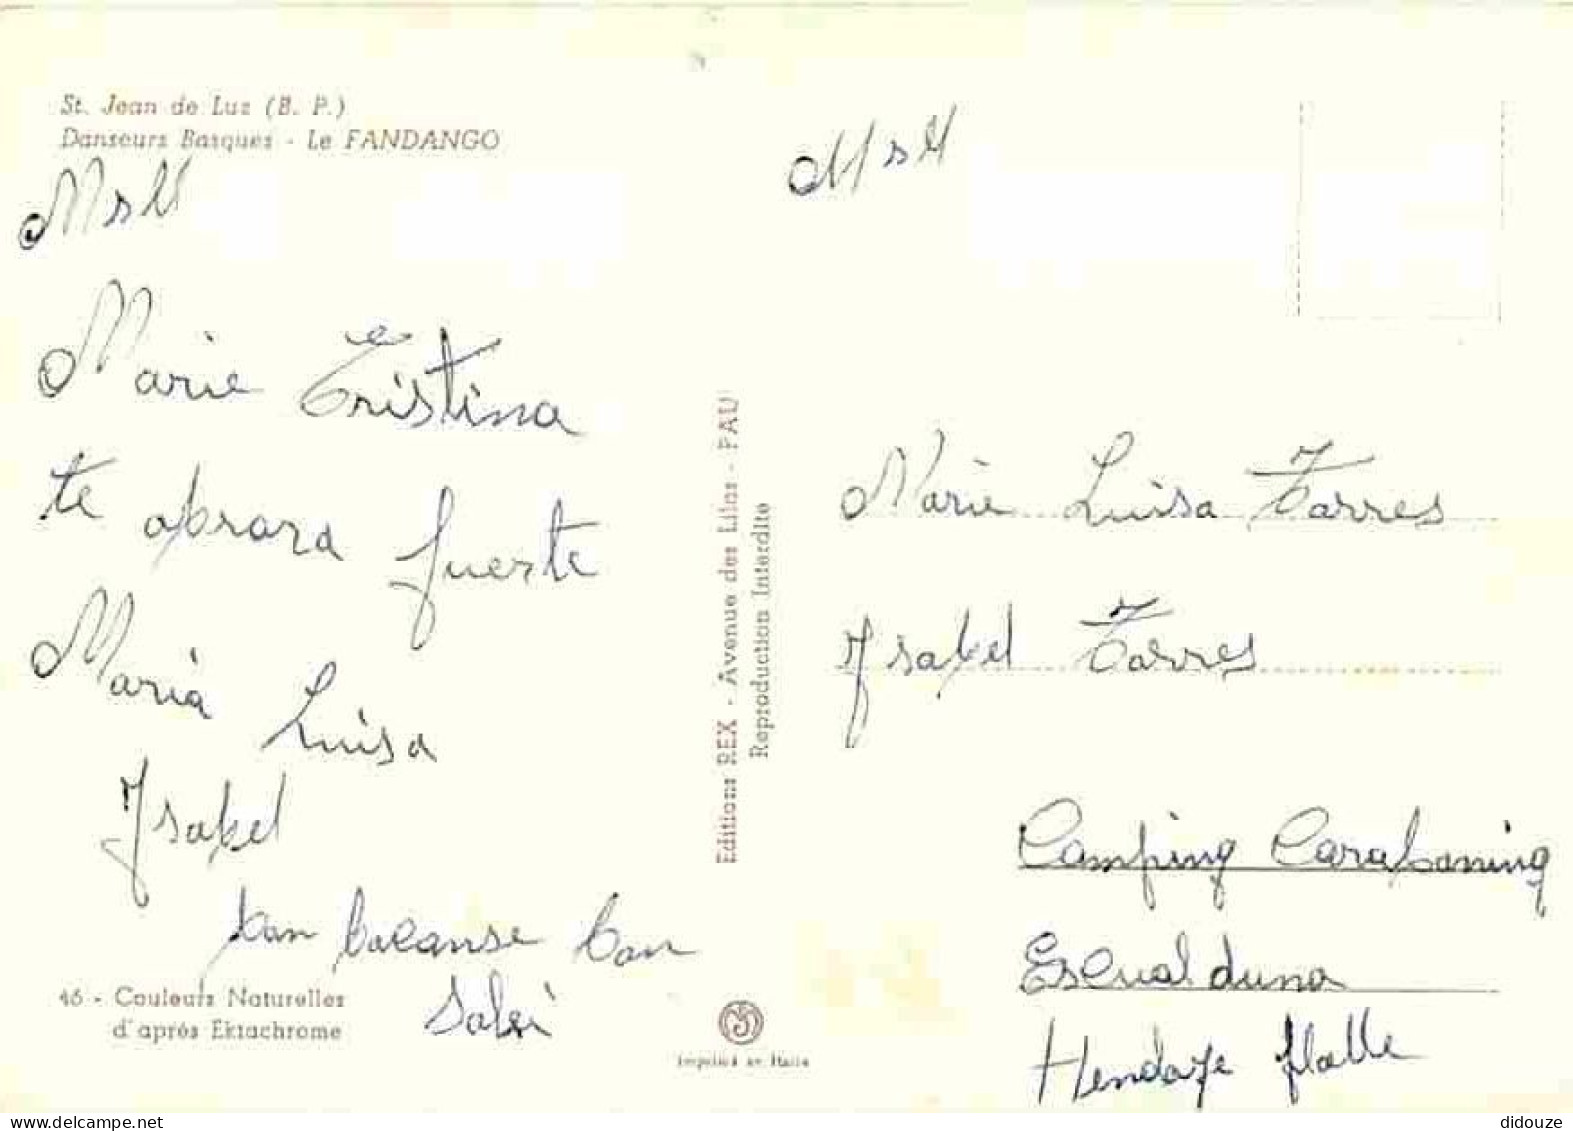 St. Jean de Luz (B. P.)
Danseurs Basques - Le FANDANGO
MsM
Marie Cristina
te abrara fuerte
Maria
Luisa
Ysabel
46 - Couleurs Naturelles
d'après Ektachrome
Editions REX - Avenue des Lilas - PAU
Reproduction Interdite
Imprimé en Italie
MsM
Marie Luisa Torres
Ysabel Torres
Camping Carabaning
Escualduna
Hendaye
didouze